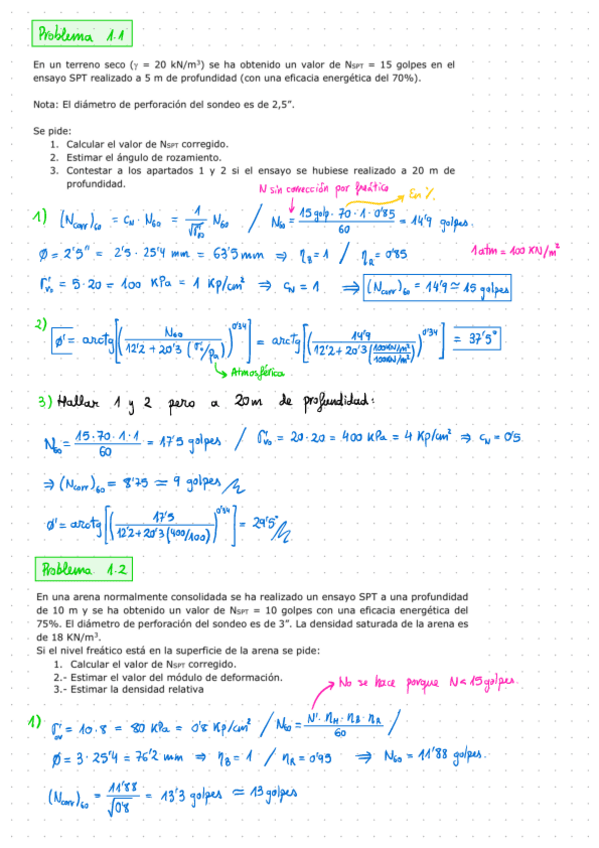 Problema 1.1
En un terreno seco (γ = 20 kN/m³) se ha obtenido un valor de NSPT = 15 golpes en el
ensayo SPT realizado a 5 m de profundidad (con una eficacia energética del 70%).
Nota: El diámetro de perforación del sondeo es de 2,5".
Se pide:
1. Calcular el valor de NSPT corregido.
2. Estimar el ángulo de rozamiento.
3. Contestar a los apartados 1 y 2 si el ensayo se hubiese realizado a 20 m de
profundidad.
N sin corrección por freático
En %.
1) (Ncorr)60 = CN · N60 = 1/√σ'v0 N60 / N60 = 15 golp · 70 · 1 · 0'85 / 60 = 14'9 golpes.
Ø = 2'5" = 2'5 · 25'4 mm = 63'5 mm ⇒ ηB = 1 / ηR = 0'85
1 atm = 100 KN/m²
σ'v0 = 5 · 20 = 100 KPa = 1 Kp/cm² ⇒ CN = 1 ⇒ (Ncorr)60 = 14'9 ≃ 15 golpes
2) Ø' = arctg[(N60 / (12'2 + 20'3 (σ'/pa)))^0'34] = arctg[(14'9 / (12'2 + 20'3 (100KN/m² / 100KN/m²)))^0'34] = 37'5°
Atmosférica
3) Hallar 1 y 2 pero a 20m de profundidad:
N60 = 15 · 70 · 1 · 1 / 60 = 17'5 golpes / σ'v0 = 20 · 20 = 400 KPa = 4 Kp/cm² ⇒ CN = 0'5
⇒ (Ncorr)60 = 8'75 ≃ 9 golpes
Ø' = arctg[(17'5 / (12'2 + 20'3 (400/100)))^0'34] = 29'5°
Problema 1.2
En una arena normalmente consolidada se ha realizado un ensayo SPT a una profundidad
de 10 m y se ha obtenido un valor de NSPT = 10 golpes con una eficacia energética del
75%. El diámetro de perforación del sondeo es de 3". La densidad saturada de la arena es
de 18 KN/m³.
Si el nivel freático está en la superficie de la arena se pide:
1. Calcular el valor de NSPT corregido.
2.- Estimar el valor del módulo de deformación.
3.- Estimar la densidad relativa
No se hace porque N < 15 golpes.
1) σ'ov = 10 · 8 = 80 KPa = 0'8 Kp/cm² / N60 = N' · ηH · ηB · ηR / 60 /
Ø = 3 · 25'4 = 76'2 mm ⇒ ηB = 1 / ηR = 0'95 ⇒ N60 = 11'88 golpes.
(Ncorr)60 = 11'88 / √0'8 = 13'3 golpes ≃ 13 golpes